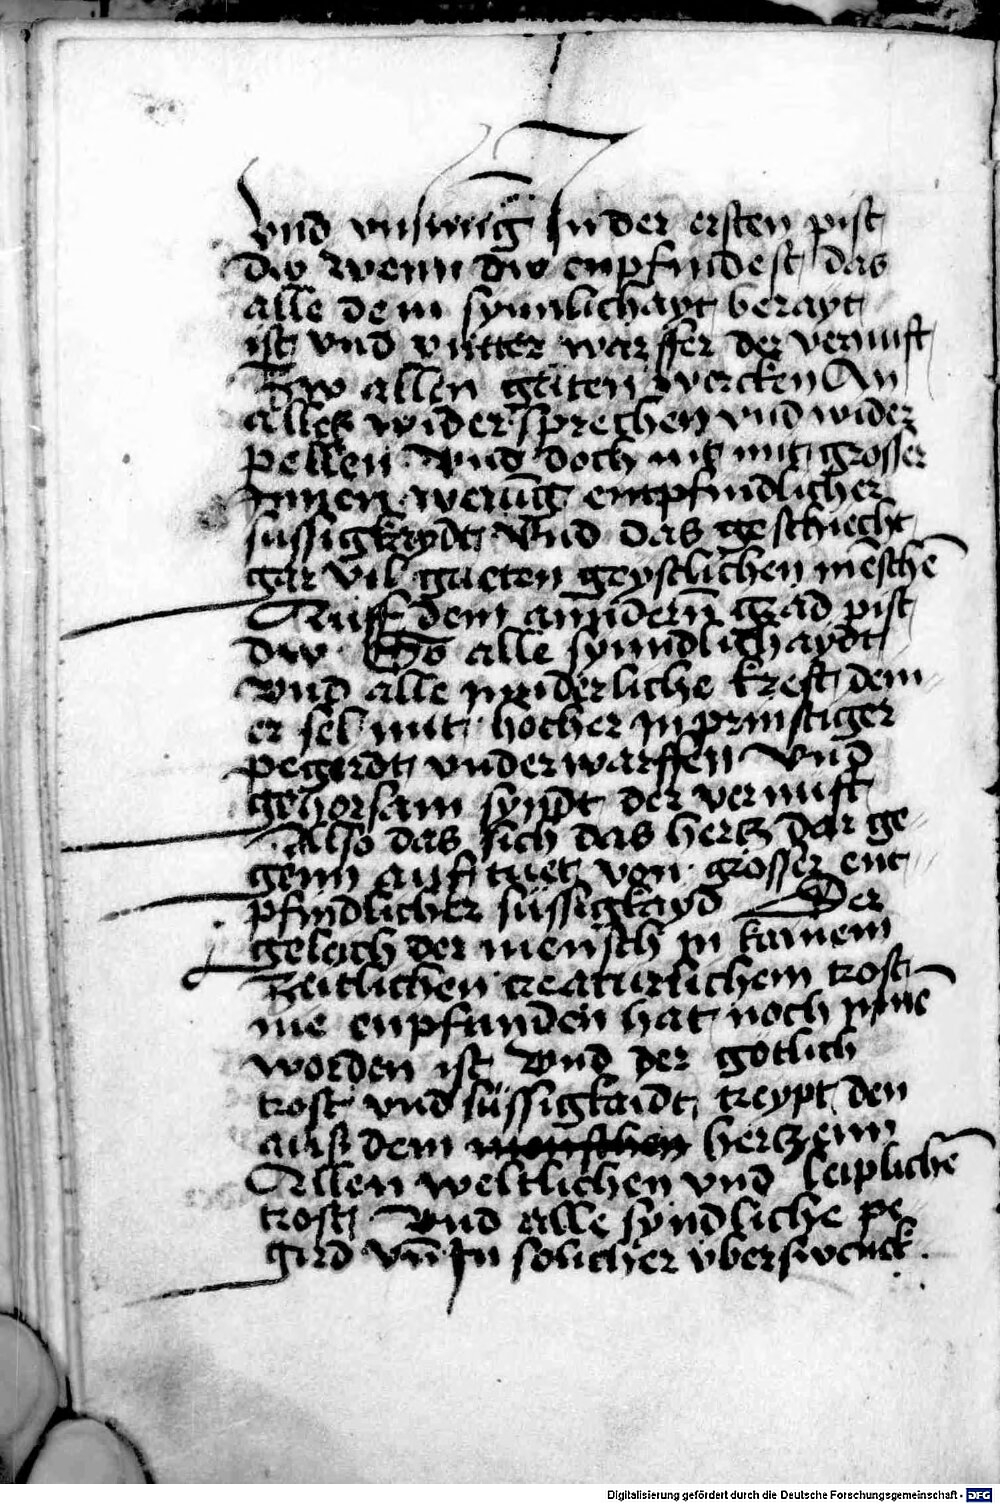 vnd vnsinnig In der ersten pist
dw wenn dw enpfindest das
alle dein synnlichayt berayt
ist vnd vntter warffen der vernuft
Zw allen guten wercken An
alles wider sprechen vnd wider
pellen Vnd doch nit mit grosser
Innen wenig entpfindlicher
sussigkaydt Vnd das geschiecht
gar vil gueten geystlichen mēschē
Auff dem anndern grad pist
dw So alle synndlichaydt
vnd alle mynderliche kreft dein
er sel mit hocher Inprinstiger
pegirdt vnderwarffen Vnd
gehorsam syndt der vernuft
Also das sich das hertz dar ge
genn auf tuet von grosser ent
pfindlicher süssigkayd Der
geleich der mensch in kainem
zeitlichen creaturlichem trost
nie enpfunden hat noch ynnē
worden ist Vnd der gotlich
trost vnd süssigkaidt treypt den
aus dem menschen hertzenn
Allen weltlichen vnd leiplichē
trost Vnd alle syndliche pe
gird vn̄ In solicher vberswenck
Digitalisierung gefördert durch die Deutsche Forschungsgemeinschaft - DFG